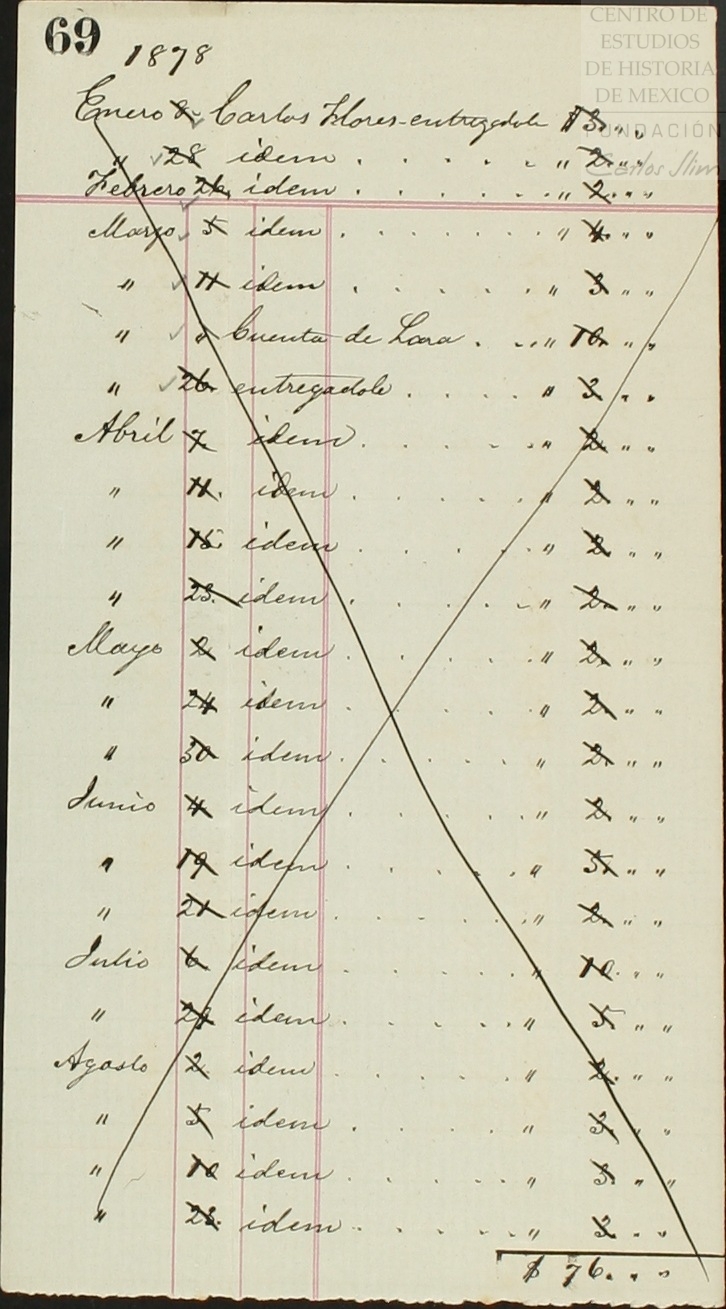 CENTRO DE
ESTUDIOS
DE HISTORIA
DE MEXICO
FUNDACIÓN
Carlos Slim
69 1878
Enero 8 Carlos Flores entregadole $ 3. " "
" 28 idem . . . . . " 2. " "
Febrero 26 idem . . . . . " 2. " "
Marzo 5 idem . . . . . " 4. " "
" 11 idem . . . . . " 3 " "
" " Cuenta de Lara . . . " 10. " "
" 26 entregadole . . . . " 3. " "
Abril 7. idem . . . . . " 2. " "
" 11. idem . . . . . " 2 " "
" 15. idem . . . . . " 2 " "
" 23. idem . . . . . " 2. " "
Mayo 2 idem . . . . . " 2. " "
" 24 idem . . . . . " 2. " "
" 30 idem . . . . . " 2. " "
Junio 4 idem . . . . . " 2. " "
" 19 idem . . . . . " 5. " "
" 21 idem . . . . . " 2. " "
Julio 6. idem . . . . . " 10. " "
" idem . . . . . " 5 " "
Agosto 2. idem . . . . . " 2. " "
" 5 idem . . . . . " 3. " "
" 10 idem . . . . . " 3. " "
" 23. idem . . . . . " 3 " "
$ 76. " "